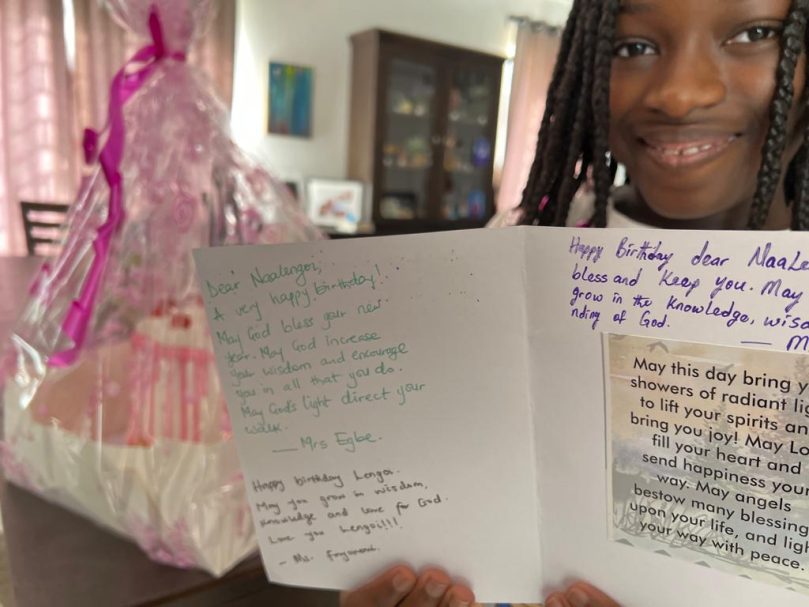 Dear Naalengoi,
A very happy birthday!
May God bless your new
year. May God increase
your wisdom and encourage
you in all that you do.
May God's light direct your
walk.
— Mrs Egbe.
Happy birthday Lengoi.
May you grow in wisdom,
knowledge and love for God.
Love you Lengoi!!!
- Ms.
Happy Birthday dear NaaLe
bless and keep you. May
grow in the knowledge, wisd
nding of God.
— M
May this day bring y
showers of radiant lig
to lift your spirits an
bring you joy! May Lo
fill your heart and
send happiness your
way. May angels
bestow many blessing
upon your life, and ligh
your way with peace.